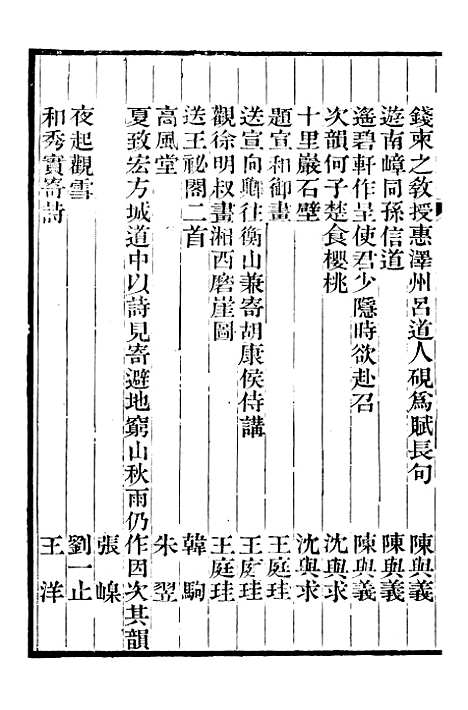 錢東之敎授惠澤州呂道人硯爲賦長句　陳與義
遊南嶂同孫信道　陳與義
遙碧軒作呈使君少隱時欲赴召　陳與義
次韻何子楚食櫻桃　沈與求
十里巖石壁　沈與求
題宣和御畫　王庭珪
送宣向卿往衡山兼寄胡康侯侍講　王庭珪
觀徐明叔畫湘西磨崖圖　王庭珪
送王祕閣二首　韓駒
高風堂　朱翌
夏致宏方城道中以詩見寄避地窮山秋雨仍作因次其韻
張嵲
夜起觀雪　劉一止
和秀實寄詩　王洋